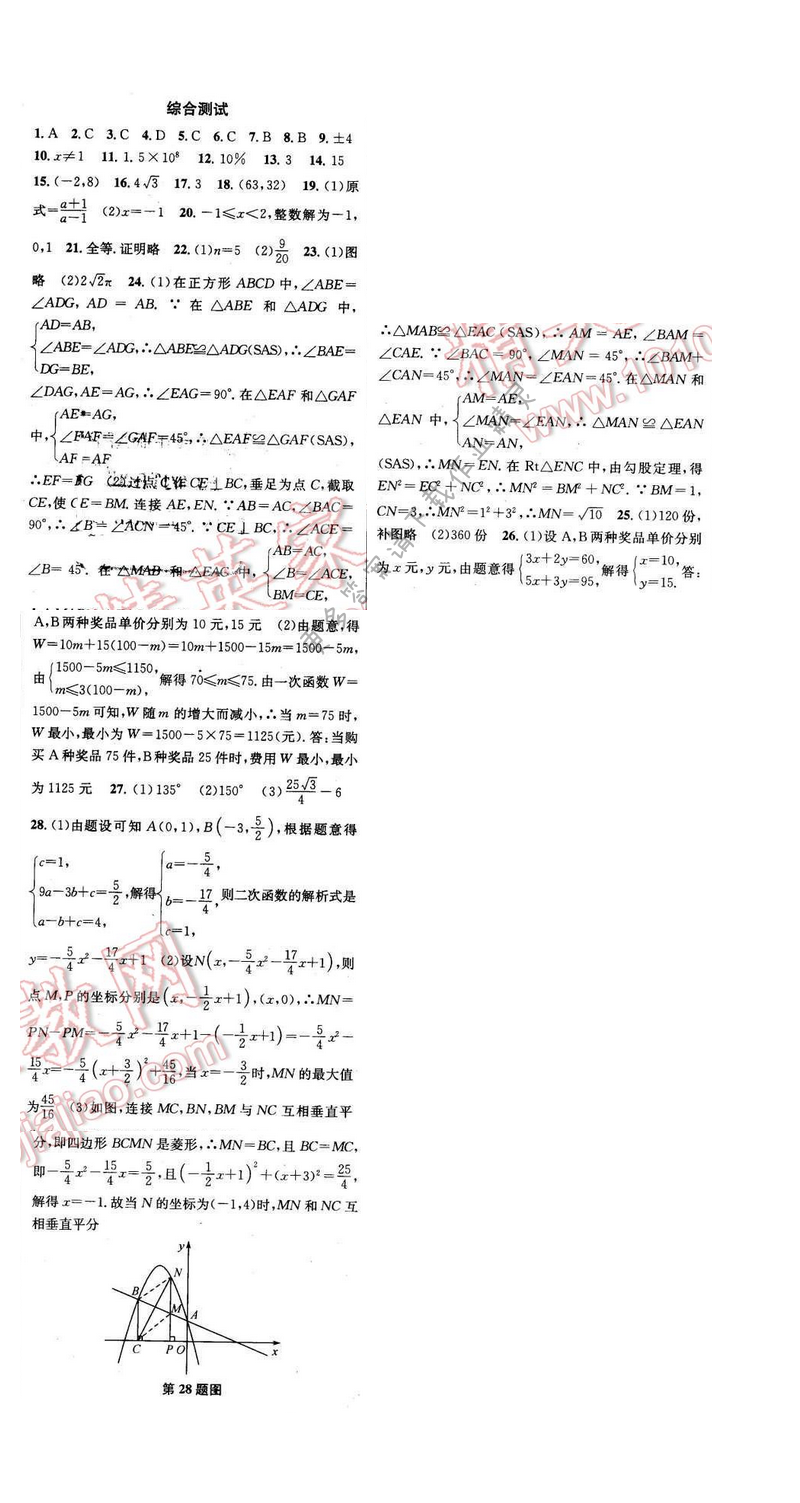 综合测试
1. A 2. C 3. C 4. D 5. C 6. C 7. B 8. B 9. ±4
10. x≠1 11. 1.5×10⁸ 12. 10% 13. 3 14. 15
15. (−2,8) 16. 4√3 17. 3 18. (63,32) 19. (1)原
式=(a+1)/(a−1) (2)x=−1 20. −1≤x<2,整数解为−1,
0,1 21. 全等.证明略 22. (1)n=5 (2)9/20 23. (1)图
略 (2)2√2π 24. (1)在正方形 ABCD 中,∠ABE=
∠ADG, AD = AB. ∵ 在 △ABE 和 △ADG 中,
{AD=AB,
∠ABE=∠ADG,∴△ABE≌△ADG(SAS),∴∠BAE=
DG=BE,
∠DAG,AE=AG,∴∠EAG=90°.在△EAF 和△GAF
中,{AE=AG,
∠EAF=∠GAF=45°,∴△EAF≌△GAF(SAS),
AF=AF
∴EF=FG (2)过点 C 作 CE⊥BC,垂足为点 C,截取
CE,使 CE=BM. 连接 AE,EN. ∵AB=AC,∠BAC=
90°,∴∠B=∠ACN=45°. ∵CE⊥BC,∴∠ACE=
∠B= 45°. 在△MAB 和△EAC 中,{AB=AC,
∠B=∠ACE,
BM=CE,
∴△MAB≌△EAC(SAS),∴AM=AE,∠BAM=
∠CAE. ∵∠BAC=90°,∠MAN=45°,∴∠BAM+
∠CAN=45°,∴∠MAN=∠EAN=45°. 在△MAN 和
△EAN 中,{AM=AE,
∠MAN=∠EAN,∴△MAN≌△EAN
AN=AN,
(SAS),∴MN=EN. 在 Rt△ENC 中,由勾股定理,得
EN²=EC²+NC²,∴MN²=BM²+NC². ∵BM=1,
CN=3,∴MN²=1²+3²,∴MN=√10 25. (1)120 份,
补图略 (2)360 份 26. (1)设 A,B 两种奖品单价分别
为 x 元,y 元,由题意得{3x+2y=60, 5x+3y=95,解得{x=10, y=15. 答:
A,B 两种奖品单价分别为 10 元,15 元 (2)由题意,得
W=10m+15(100−m)=10m+1500−15m=1500−5m,
由{1500−5m≤1150, m≤3(100−m),解得 70≤m≤75. 由一次函数 W=
1500−5m 可知,W 随 m 的增大而减小,∴当 m=75 时,
W 最小,最小为 W=1500−5×75=1125(元). 答:当购
买 A 种奖品 75 件,B 种奖品 25 件时,费用 W 最小,最小
为 1125 元 27. (1)135° (2)150° (3)25√3/4−6
28. (1)由题设可知 A(0,1),B(−3,5/2),根据题意得
{c=1, 9a−3b+c=5/2, a−b+c=4,解得{a=−5/4, b=−17/4, c=1,则二次函数的解析式是
y=−5/4x²−17/4x+1 (2)设N(x,−5/4x²−17/4x+1),则
点 M,P 的坐标分别是(x,−1/2x+1),(x,0),∴MN=
PN−PM=−5/4x²−17/4x+1−(−1/2x+1)=−5/4x²−
15/4x=−5/4(x+3/2)²+45/16,当 x=−3/2时,MN 的最大值
为45/16 (3)如图,连接 MC,BN,BM 与 NC 互相垂直平
分,即四边形 BCMN 是菱形,∴MN=BC,且 BC=MC,
即−5/4x²−15/4x=5/2,且(−1/2x+1)²+(x+3)²=25/4,
解得 x=−1. 故当 N 的坐标为(−1,4)时,MN 和 NC 互
相垂直平分
y
N
B
M
A
C P O x
第 28 题图